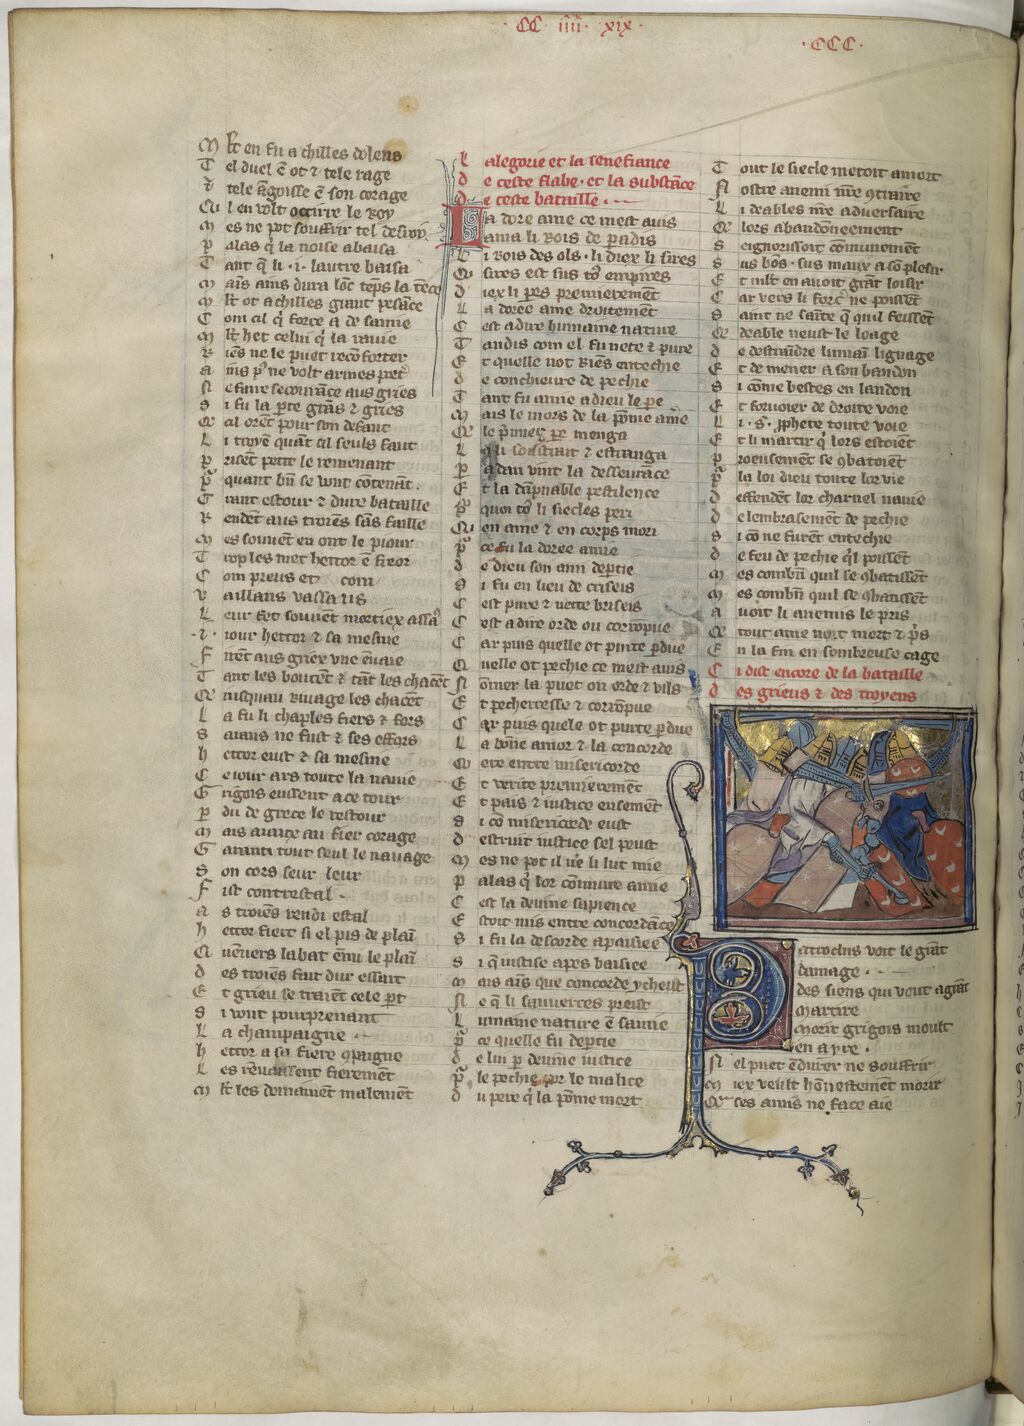 CC IIII XIX
CCC
Mlt en fu achilles dolens
Tel duel ē ot ⁊ tele rage
⁊ tele āgoisse ē son corage
Qul en volt occirre le roy
Mes ne pot souffrir tel desroy
Palas q̄ la noise abaisa
Tant q̄ li .i. lautre baisa
Mais ains dura lōc teps la tēco
Mlt ot achilles grant pesāce
Com cil q̄ force a de samie
Mlt het celui q̄ la rauie
Riēs ne le puet recōforter
Ains pͬ ne volt armes pͬter
Ne faire secourāce aus gries
Si fu la pͬte grās ⁊ gries
Qͤ cil orēt pour son defaut
Li troyē quāt cil seuls faut
Prisēt petit le remenant
Pͬquant bn̄ se wnt cōtenāt.
Grant estour ⁊ dure bataille
Rendēt aus troiēs sās faille
Mes souuēt en ont le piour
Trop les met hector ē freor
Com preus et com
Vaillans vassaus
Leur fet souuēt mortiex assaͬ
.I. iour hector ⁊ sa mesnie
Frēt aus griex vne ēuaie
Tant les boutēt ⁊ tāt les chacēt
Qͤ iusquau riuage les chacēt
La fu li chaples fiers ⁊ fors
Auaus ne fust ⁊ ses effors
Hector eust ⁊ sa mesnie
Ce iour ars toute la nauie
Grigois eussent a ce tour
Perdu de grece le restour
Mais aiaux au fier corage
Garanti tout seul le nauage
Son cors seur leur
Fist contrestal .
As troiēs rendi estal
Hector fiert si el pis de plaī
Quēuers labat ēmi le plaī
Des troiēs fait dur essart
Et grieu se traiēt cele pͬt
Si wnt pourprenant
La champaigne
Hector a sa fiere ꝯpaigne
Les rēuaissent fierement
Mlt les demainēt malemēt
Lalegorie et la senefiance
De ceste flabe . et la substāce
De ceste bataille .
La doree ame ce mest auis
ama li rois de paradis
Li rois des ols . li diex li sires
Qͥ sires est sus toͬ empires
Diex li peͬs premieremēt
La doree ame droitemēt
Cest a dire humaine nature
Tandis com el fu nete ⁊ pure
Et quelle not riēs entechie
De conchieure de pechie
Tant fu amie a dieu le pere
Mais le mors de la pōme ameͬ
Qͤ le pͥmeͬs pere menga
Lq̄ li soustrait ⁊ estranga
Padan vint la desseurāce
Et la dāpnable pestilence
Pͬ quoi toͬ li siecles peri
Qͥ en ame ⁊ en corps mori
Pͬce fu la doree amie
De dieu son ami departie
Si fu en lieu de criseis
Cest pure ⁊ nette briseis
Cest a dire orde ou corrōpue
Car puis quelle ot purte perdue
Quelle ot pechie ce mest auis
Nōmer la puet on orde ⁊ vils
Et pecherresse ⁊ corrōpue
Car puis quele ot purte perdue
La bōne amor ⁊ la concorde
Qͥ ere entre misericorde
Et verite premieremēt
Et pais ⁊ iustice ensemēt
Si cō misericorde eust
Destruit iustice sel peust
Mes ne pot il ve li lut mie
Palas q̄ lor cōmune amie
Cest la deuine sapience
Estoit mis entre concordāce
Si fu la descorde apaisiee
Si q̄ iustise apres baisiee
Mais aīs que concorde y cheist
Ne q̄ li sauuerres preist
Lumaine nature ē samie
Pͬ ce quelle fu departie
De lui per deuine iustice
Pͬ le pechie per le malice
Du pere q̄ la pōme mort
Tout le siecle metoit amort
Nostre anemi nr̄e ꝯtraire
Li deables nr̄e aduersaire
Qͤ lors abandōneement
Seignorissoit cōmunemēt
Sus bōs . sus maux a sō plesir
Et mlt en auoit grāt loisir
Car vers li force ne poissēt
Saint ne sainte q̄ quil feissēt
Qͤ deable neust le loage
De destraīdre lumaī lignage
Et de mener a son bandon
Si cōme bestes en landon
Et foruoier de droite voie
Li . s̄ . ꝓphete toute voie
Et li martir q̄ lors estoiēt
Proeusement se ꝯbatoiēt
Pͬ la loi dieu toute lor vie
Deffendēt lor charnel nauie
De lembrasemēt de pechie
Si cō ne furēt entechie
De feu de pechie q̄l poissēt
Mes combn̄ quil se ꝯbatissēt
Mes combn̄ quil se ꝯbatissēt
Auoit li anemis le pris
Qͤ tout ame noit mort ⁊ pͬs
En la fin en sombreuse cage
Ci dist encore de la bataille
Des grieus ⁊ des troyens
Patroclus voit le grāt
damage .
des siens qui vont a grāt
martire
Morir grigois moult
en a yre .
Nel puet ēdurer ne souffrir
Miex veult hōnestemēt morir
Qͤ ces amis ne face aie